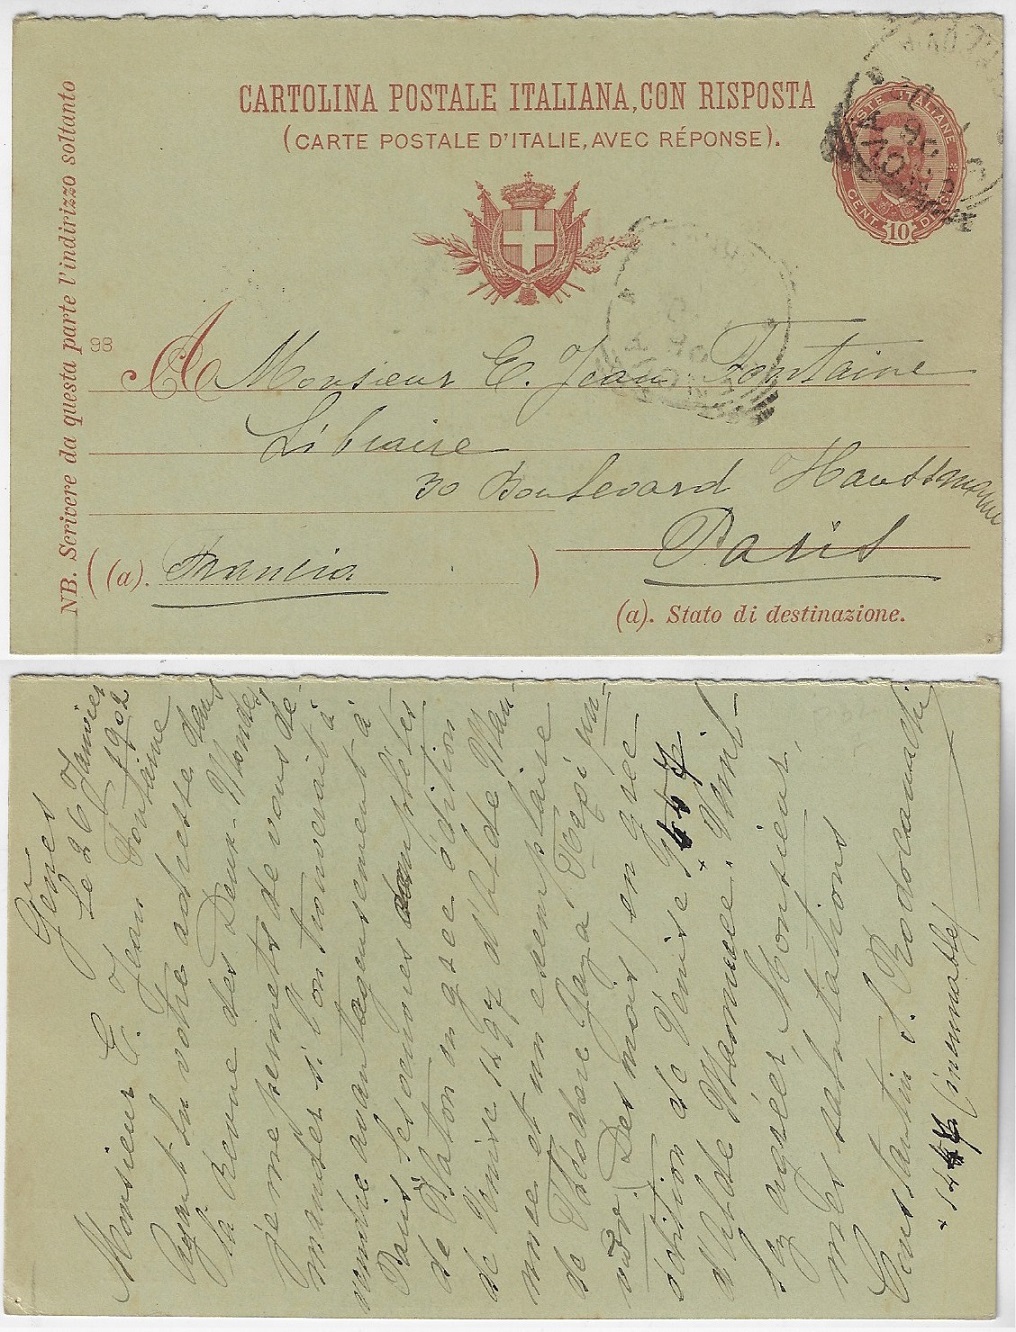 CARTOLINA POSTALE ITALIANA, CON RISPOSTA
(CARTE POSTALE D'ITALIE, AVEC RÉPONSE).
POSTE ITALIANE
CENT. DIECI
10
NB. Scrivere da questa parte l'indirizzo soltanto
98
A Monsieur E. Jean Fontaine
Libraire
30 Boulevard Haussmann
Paris
(a). Francia
(a). Stato di destinazione.
Gênes
Le 26 Janvier 1902
Monsieur E. Jean Fontaine
Ayant lu votre adresse dans
la Revue des Deux-Mondes
je me permets de vous de
mander si l'on trouverait à
vendre avantageusement à
Paris les œuvres complètes
de Platon in grec édition
de Venise 1297 d'Alde Man
uce et un exemplaire
de Théodore Gaza
(Des mois) en grec
édition de Venise 1447
d'Alde Mannuce.
agréér, Monsieur,
mes salutations
Constantin S. Rodocanachi